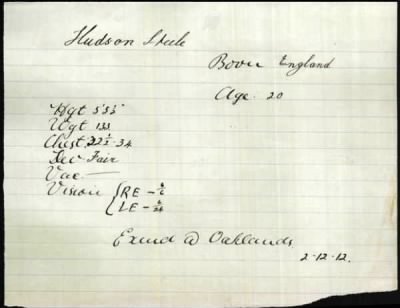 Hudson Steele
Born England
Age. 20
Hgt 5'5½"
Wgt 133
Chest 32½-34
Dev Fair
Vac —
Vision { RE - 6/6
LE - 6/24
Exmd @ Oaklands.
2-12-12.